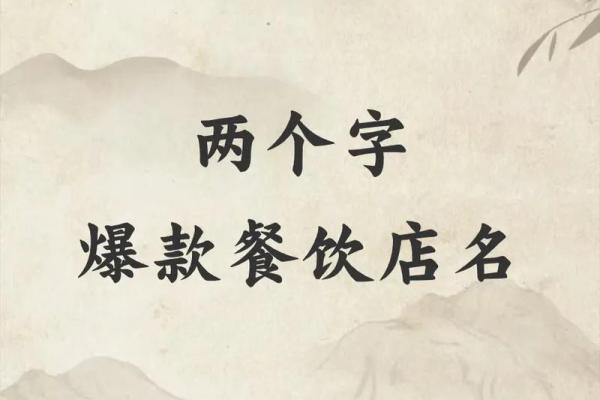 两个字
爆款餐饮店名